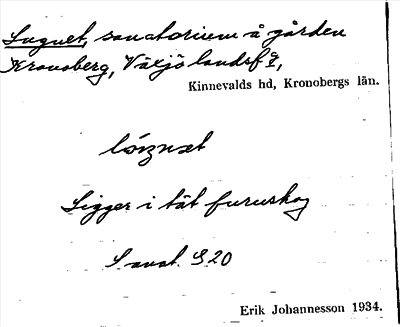 Lugnet, sanatorium å gården
Kronoberg, Växjö landsf g,
Kinnevalds hd, Kronobergs län.
Ligger i tät furuskog
S 20
Erik Johannesson 1934.